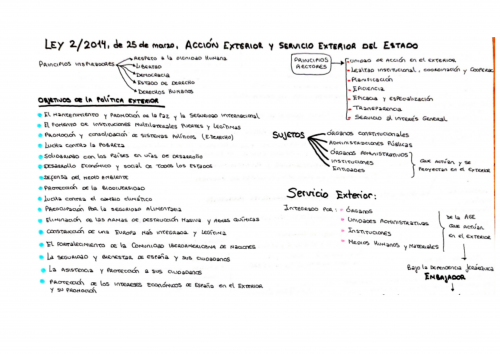 LEY 2/2014, de 25 de marzo, ACCIÓN EXTERIOR Y SERVICIO EXTERIOR DEL ESTADO
PRINCIPIOS INSPIRADORES
RESPETO A LA DIGNIDAD HUMANA
LIBERTAD
DEMOCRACIA
ESTADO DE DERECHO
DERECHOS HUMANOS
OBJETIVOS DE LA POLÍTICA EXTERIOR
El mantenimiento y promoción de la paz y la seguridad internacional
El fomento de instituciones multilaterales fuertes y legítimas
Promoción y consolidación de sistemas políticos (E. Derecho)
Lucha contra la pobreza
Solidaridad con los países en vías de desarrollo
Desarrollo económico y social de todos los estados
Defensa del medio ambiente
Protección de la biodiversidad
Lucha contra el cambio climático
Preocupación por la seguridad alimentaria
Eliminación de las armas de destrucción masiva y armas químicas
Construcción de una Europa más integrada y legítima
El fortalecimiento de la Comunidad Iberoamericana de Naciones
La seguridad y bienestar de España y sus ciudadanos
La asistencia y protección a sus ciudadanos
Protección de los intereses económicos de España en el exterior
y su promoción
PRINCIPIOS
RECTORES
Unidad de acción en el exterior
Lealtad institucional, coordinación y
Planificación
Eficiencia
Eficacia y especialización
Transparencia
Servicio al interés general
SUJETOS
órganos constitucionales
Administraciones Públicas
órganos administrativos
Instituciones
Entidades
que actúan y se
proyectan en el exterior
Servicio Exterior:
Integrado por:
órganos
Unidades Administrativas
Instituciones
Medios humanos y materiales
de la AGE
que actúan
en el exterior
Bajo la dependencia jerárquica
EMBAJADOR